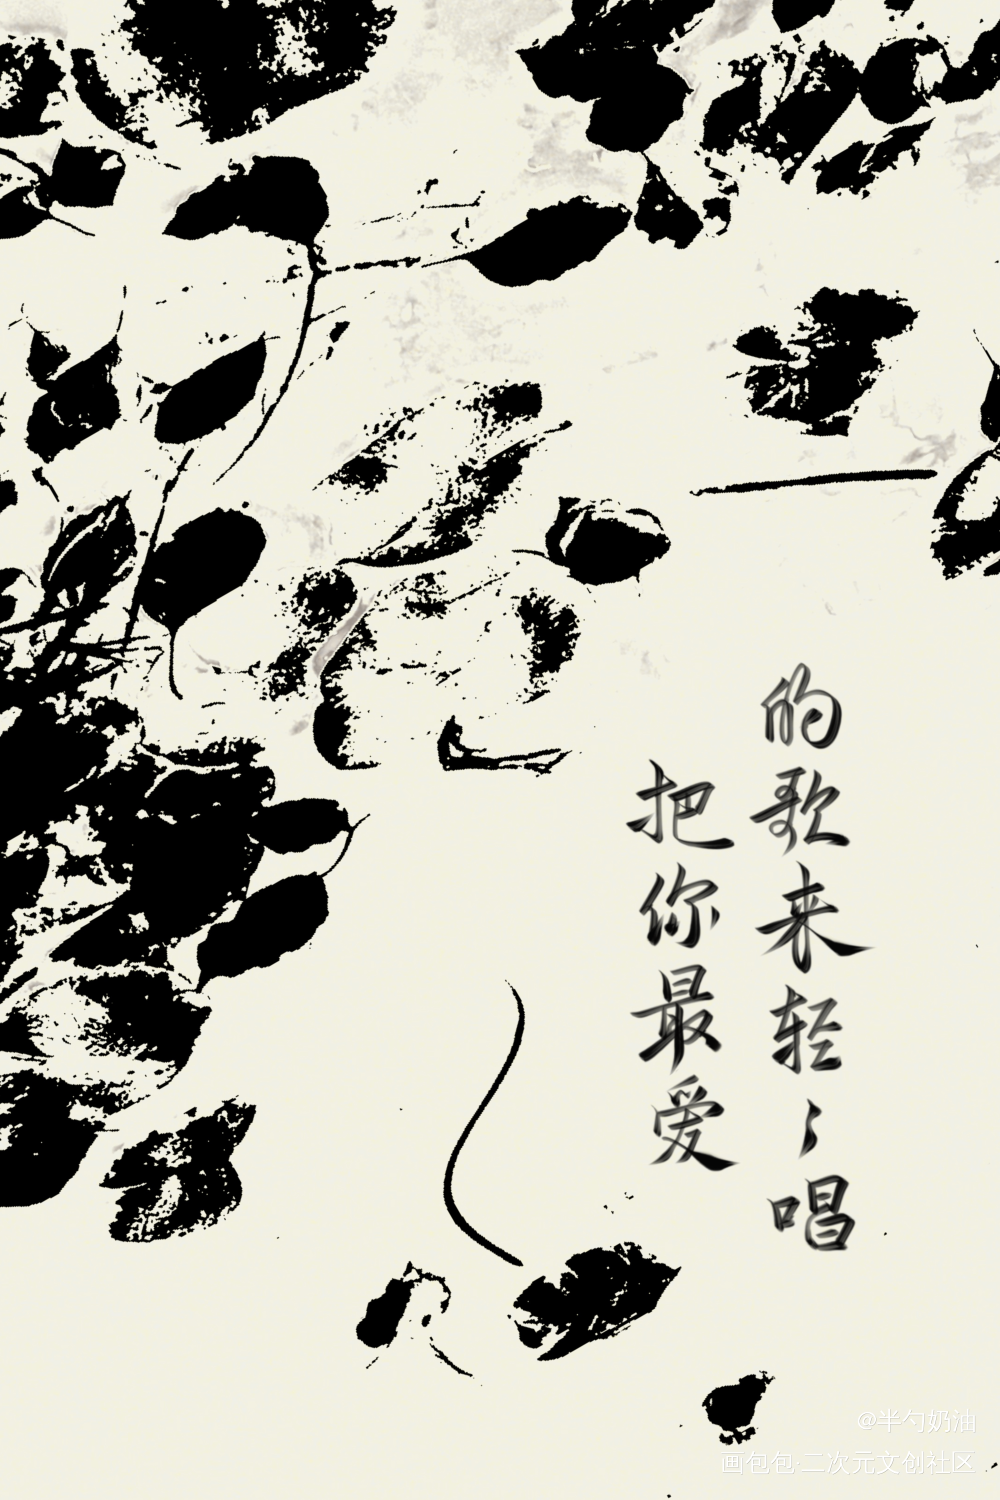 把你最爱
的歌来轻〻唱
@半勺奶油
画包包·二次元文创社区